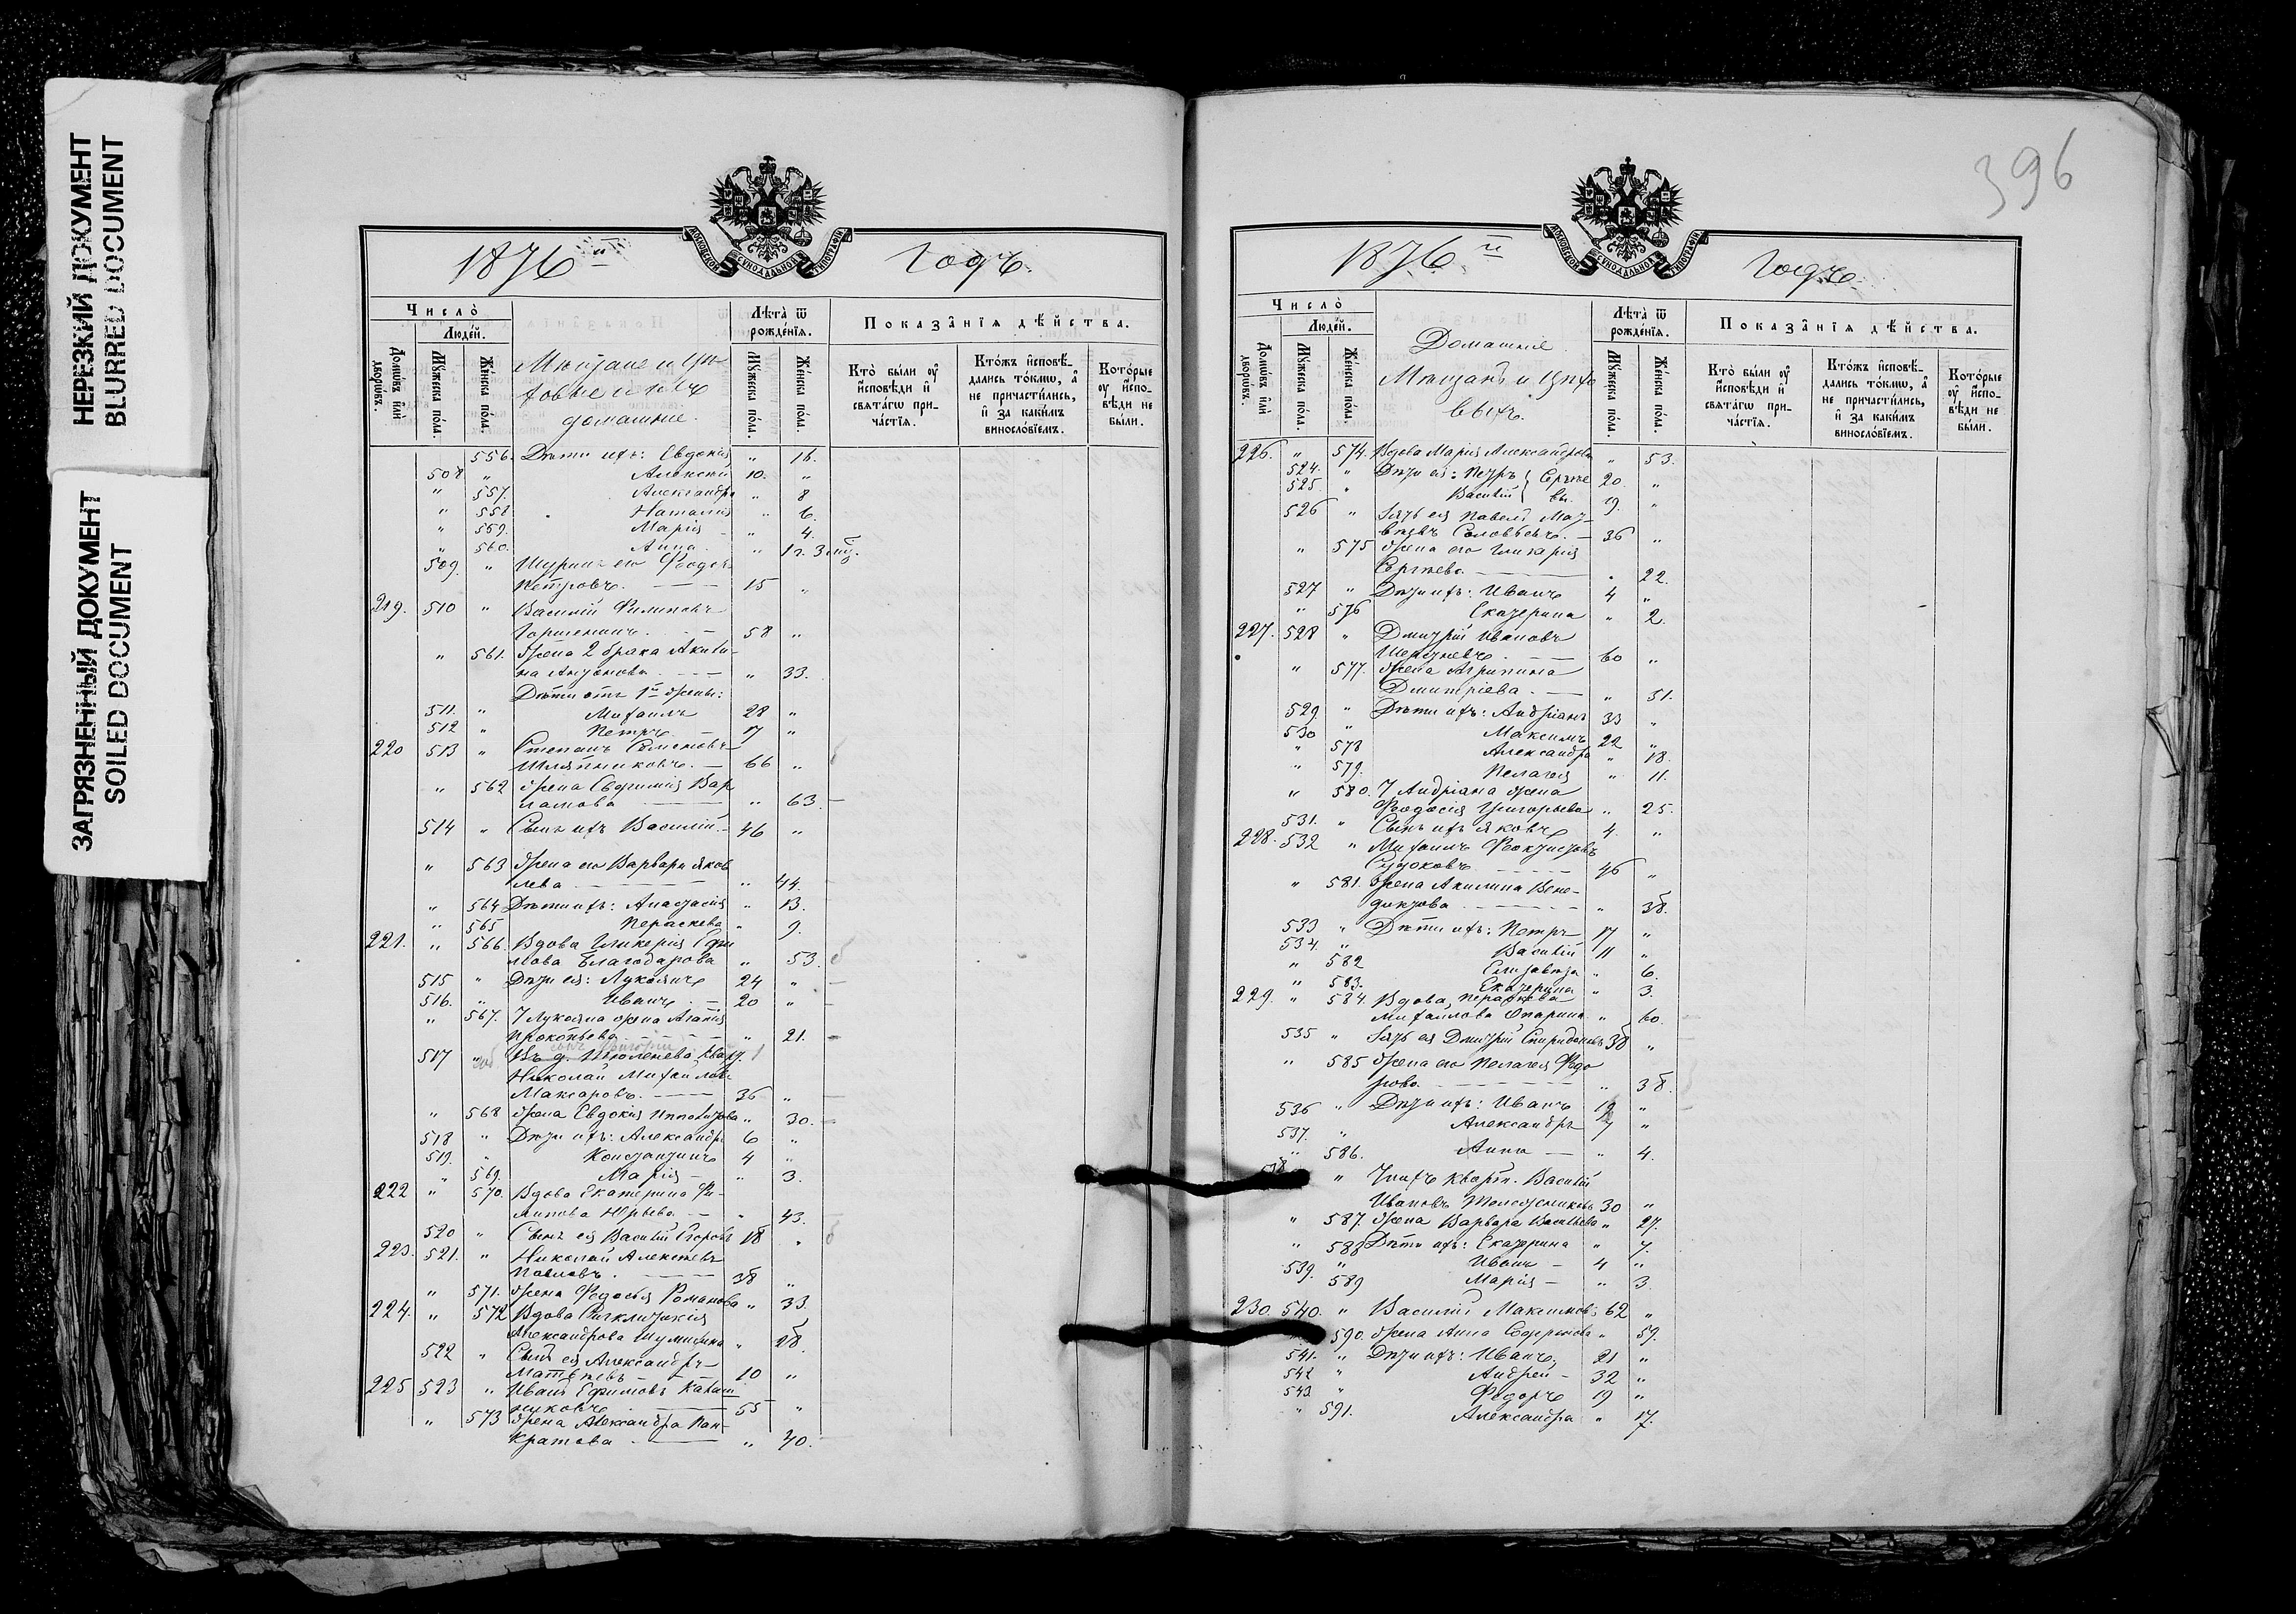 НЕРЕЗКИЙ ДОКУМЕНТ
BLURRED DOCUMENT
ЗАГРЯЗНЕННЫЙ ДОКУМЕНТ
SOILED DOCUMENT
МОСКОВСКОЙ СѴНОДАЛЬНОЙ ТИПОГРАФІИ
1876й Годъ.
Число̀
Людéй.
Домѡ́въ и҆лѝ дворѡ́въ.
Мꙋ́жеска по́ла.
Же́нска по́ла.
Мѣщане и цеховые и ихъ домашніе.
Лѣ́та ѿ рожде́нїѧ.
Мꙋ́жеска по́ла.
Же́нска по́ла.
Показа̑нїѧ дѣ́йства.
Кто̀ бы́ли ᲂу҆ и҆сповѣди и҆ свѧта́гѡ прича́стїѧ.
Кто́жъ и҆сповѣ́дались то́кмѡ, а҆ не причасти́лись, и҆ за каки́мъ винословїемъ.
Кото́рые ᲂу҆ и҆сповѣди не бы́ли.
556. Дѣти ихъ: Евдокія " 16.
508 " Алексѣй 10. "
" 557. Александра " 8
" 558. Наталія " 6.
" 559. Марія " 4.
" 560. Анна " 1 г. 3 мѣс.
509. " Шуринъ его Ѳеодоръ
Петровъ. 15 "
219. 510 " Василій Филиповъ
Горшенинъ. 58 "
" 561. Жена 2 брака Акили-
на Антонова " 33.
Дѣти отъ 1й жены:
511. " Михаилъ 28 "
512 " Петръ 17 "
220 513 " Степанъ Семеновъ
Шляпниковъ. 66 "
" 562 Жена Евфимія Вар
ламова " 63.
514 " Сынъ ихъ Василій 46 "
" 563 Жена его Варвара Яков
лева " 44.
" 564 Дѣти ихъ: Анастасія " 13.
" 565 Параскева " 9.
221. " 566. Вдова Гликерія Ефи
мова Благодарова " 53.
515 " Дѣти ея: Лукіянъ 24 "
516. " Иванъ 20 "
" 567. У Лукіяна жена Агапія
Прокопьева " 21.
517 " Въ д. Шюленева кварт.
Николай Михайловъ
Макаровъ. 36 "
" 568 Жена Евдокія Ипполитова " 30.
518 " Дѣти ихъ: Александръ 6 "
519. " Константинъ 4 "
" 569. Марія " 3.
222 " 570. Вдова Екатерина Фи-
липова Юрьева " 43.
520 " Сынъ ея Василій Егоровъ 18 "
223. 521. " Николай Алексѣевъ
Павловъ. 38 "
" 571. Жена Ѳедосья Романова " 33.
224. " 572 Вдова Синклитикія
Александрова Шумилина " 28.
522 " Сынъ ея Александръ
Матвѣевъ 10 "
225 523 " Иванъ Ефимовъ
55 "
" 573 Жена Александра Пан-
кратова " 40.
396
МОСКОВСКОЙ СѴНОДАЛЬНОЙ ТИПОГРАФІИ
1876й Годъ.
Число̀
Людéй.
Домѡ́въ и҆лѝ дворѡ́въ.
Мꙋ́жеска по́ла.
Же́нска по́ла.
Домашніе
Мѣщанъ и Цехо
выхъ.
Лѣ́та ѿ рожде́нїѧ.
Мꙋ́жеска по́ла.
Же́нска по́ла.
Показа̑нїѧ дѣ́йства.
Кто̀ бы́ли ᲂу҆ и҆сповѣди и҆ свѧта́гѡ прича́стїѧ.
Кто́жъ и҆сповѣ́дались то́кмѡ, а҆ не причасти́лись, и҆ за каки́мъ винословїемъ.
Кото́рые ᲂу҆ и҆сповѣди не бы́ли.
226. " 574. Вдова Марія Александрова " 53.
524. " Дѣти ея: Петръ } Сергѣе 20. "
525 " Василій } вы. 19. "
526 " Зять ея Павелъ Мат-
вѣевъ Соловьевъ. 36 "
" 575 Жена его Гликерія
Сергѣева " 22.
527 " Дѣти ихъ: Иванъ 4 "
" 576 Екатерина " 2.
227. 528 " Дмитрій Ивановъ
60 "
" 577. Жена Агрипина
Дмитріева " 51.
529. " Дѣти ихъ: Андріанъ 33 "
530 " Максимъ 22 "
" 578 Александра " 18.
" 579. Пелагея " 11.
" 580. У Андріана жена
Ѳеодосія Григорьева " 25.
531. " Сынъ ихъ Яковъ 4. "
228. 532 " Михаилъ Ѳеоктистовъ
Судоковъ 46 "
" 581. Жена Акилина Вене-
диктова " 38.
533 " Дѣти ихъ: Петръ 17 "
534. " Василій 11 "
" 582 Елизавета " 6.
" 583. Екатерина " 3.
229. " 584. Вдова, Параскева
Михаилова Опарина " 60.
535 " Зять ея Дмитрій Спиридоновъ 38 "
" 585 Жена его Пелагея Ѳедо
рова " 38.
536 " Дѣти ихъ: Иванъ 12 "
537. " Александръ 7 "
" 586. Анна " 4.
538 " У нихъ кварт. Василій
Ивановъ 30 "
" 587. Жена Варвара Васильева " 27.
" 588 Дѣти ихъ: Екатерина " 7.
539. " Иванъ 4 "
" 589 Марія " 3
230. 540. " Василій Максимовъ 62 "
590. Жена Анна Сергѣева " 59.
541. " Дѣти ихъ: Иванъ 21 "
542 " Андрей 32 "
543. " Ѳедоръ 19 "
" 591. Александра " 17.